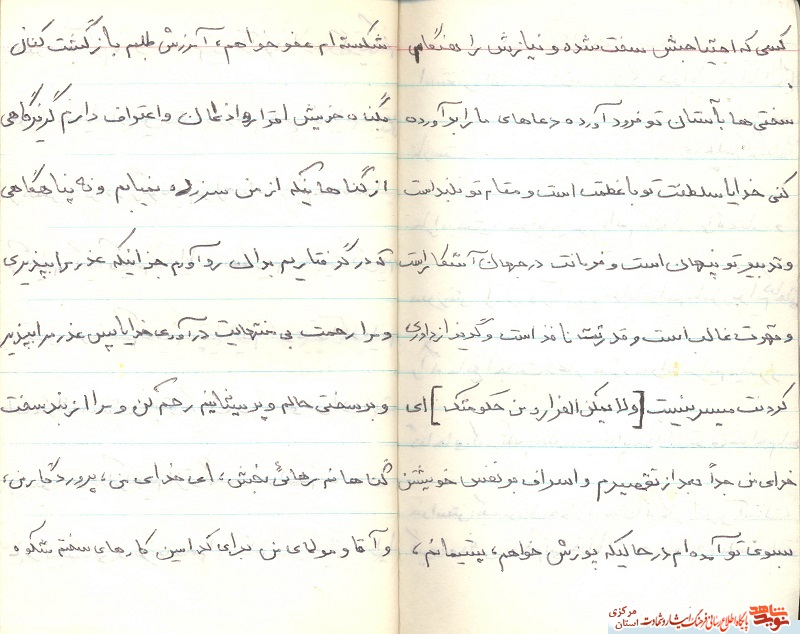 کسی که احتیاجش سخت شده و نیازش را هنگام
سختی ها بآستان تو فرود آورده دعاهای ما را برآورده
کنی خدایا سلطنت تو با عظمت است و مقام تو بلند است
و تدبیر تو پنهان است و فرمانت در جهان آشکار است
و قهرت غالب است و قدرتت نافذ است و گریز از داوری
کردنت میسر نیست [ولا یمکن الفرار من حکومتک] ای
خدای من جداً بعد از تقصیرم و اسراف بر نفس خویشتن
بسوی تو آمده ام در حالیکه پوزش خواهم، پشیمانم،
شکسته ام عفو خواهم، آمرزش طلبم بازگشت کنان
بگناه خویش اقرار و اذعان و اعتراف دارم گریزگاهی
از گناهانیکه از من سرزده نمیابم و نه پناهگاهی
که در گرفتاریم بدان رو آورم جز اینکه عذر مرا بپذیری
و مرا رحمت بی منتهایت درآوری خدایا پس عذر مرا بپذیر
و بر سختی حالم و پریشانیم رحم کن و مرا از بند سخت
گناهانم رهائی بخش، ای خدای من، پروردگار من،
و آقا و مولای من برای کدامین کارهای سختم شکوه
نوید شاهد
پایگاه اطلاع رسانی فرهنگ ایثار و شهادت
استان مرکزی